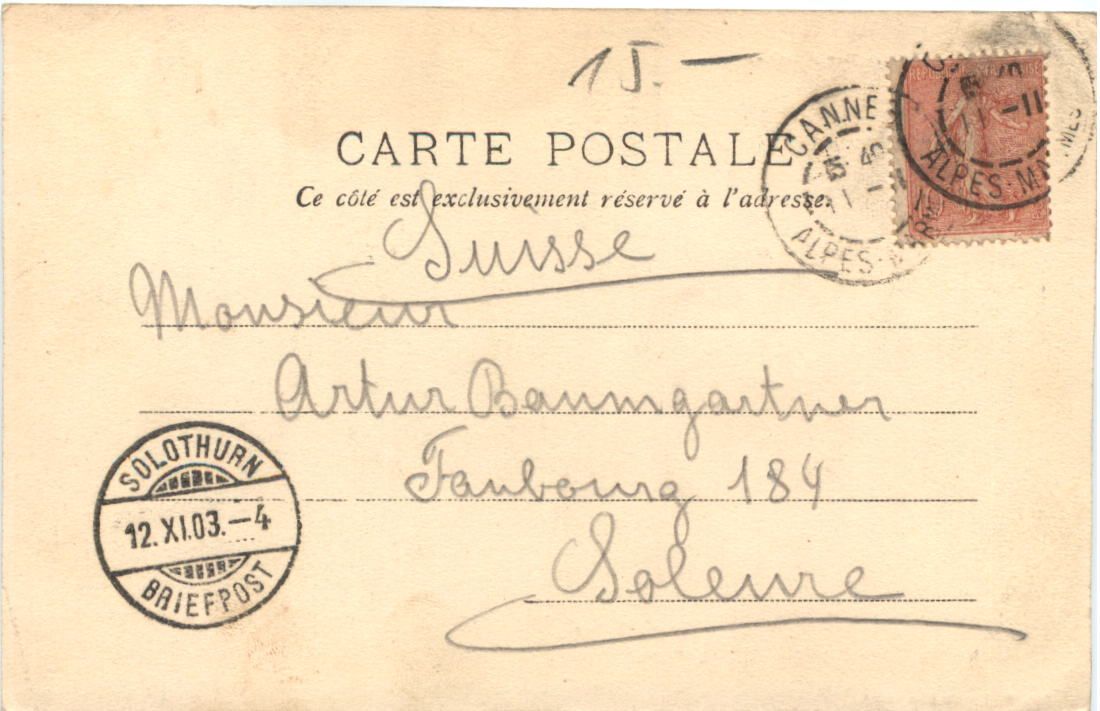 15.—
CARTE POSTALE
Ce côté est exclusivement réservé à l'adresse.
Suisse
Monsieur
Artur Baumgartner
Faubourg 184
Soleure
SOLOTHURN
12.XI.03.—4
BRIEFPOST
CANNE
ALPES-
RÉPUBLIQUE FRANÇAISE
ALPES-MA MES